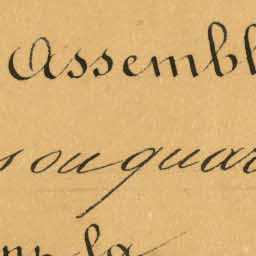 Assembl
s ou quar
la